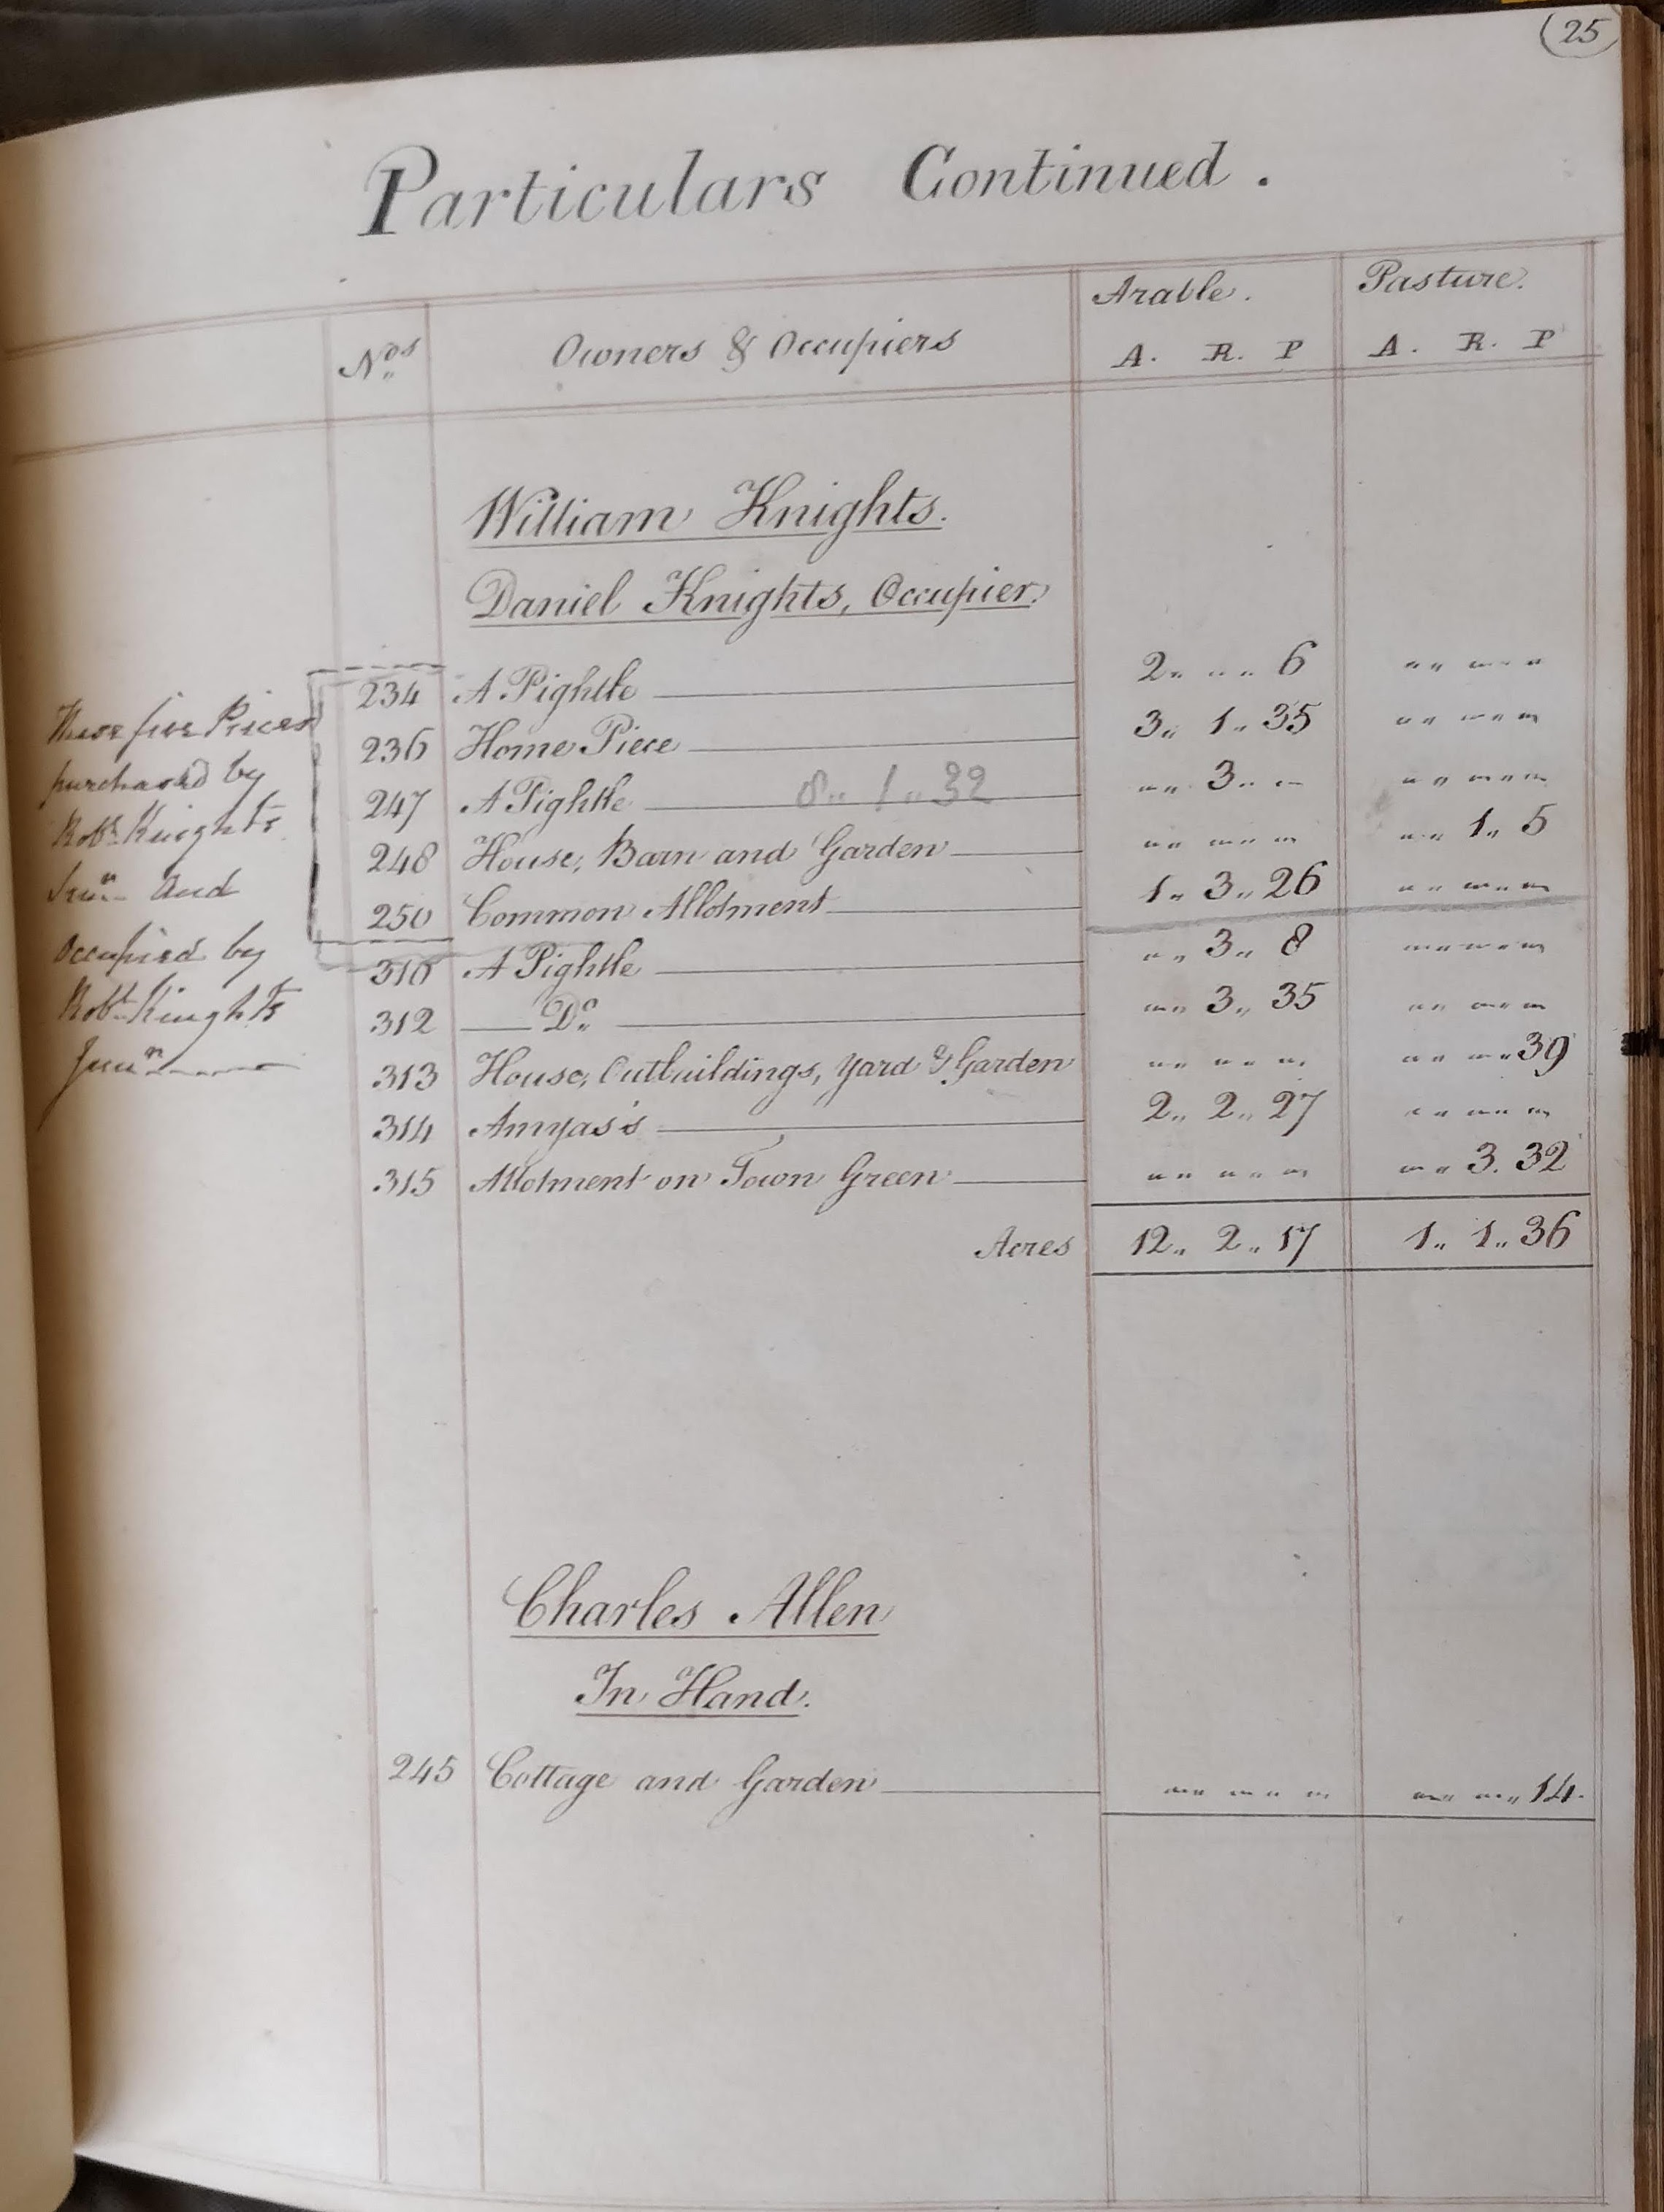 25
Particulars Continued.
Nos Owners & Occupiers Arable. Pasture.
A. R. P A. R. P
William Knights.
Daniel Knights, Occupier.
234 A Pightle 2 „ „ „ 6
236 Home Piece 3 „ 1 „ 35
247 A Pightle 8 „ 1 „ 32 „ „ 3 „ „
248 House, Barn and Garden „ „ 1 „ 5
250 Common Allotment 1 „ 3 „ 26
310 A Pightle „ „ 3 „ 8
312 Do „ „ 3 „ 35
313 House, Outbuildings, Yard & Garden „ „ „ „ 39
314 Amyas's 2 „ 2 „ 27
315 Allotment on Town Green „ „ 3. 32
Acres 12 „ 2 „ 17 1 „ 1 „ 36
These five Pieces
purchased by
Robt Knights
Senr and
Occupied by
Robt Knights
Junr
Charles Allen
In Hand.
245 Cottage and Garden „ „ „ „ 14.